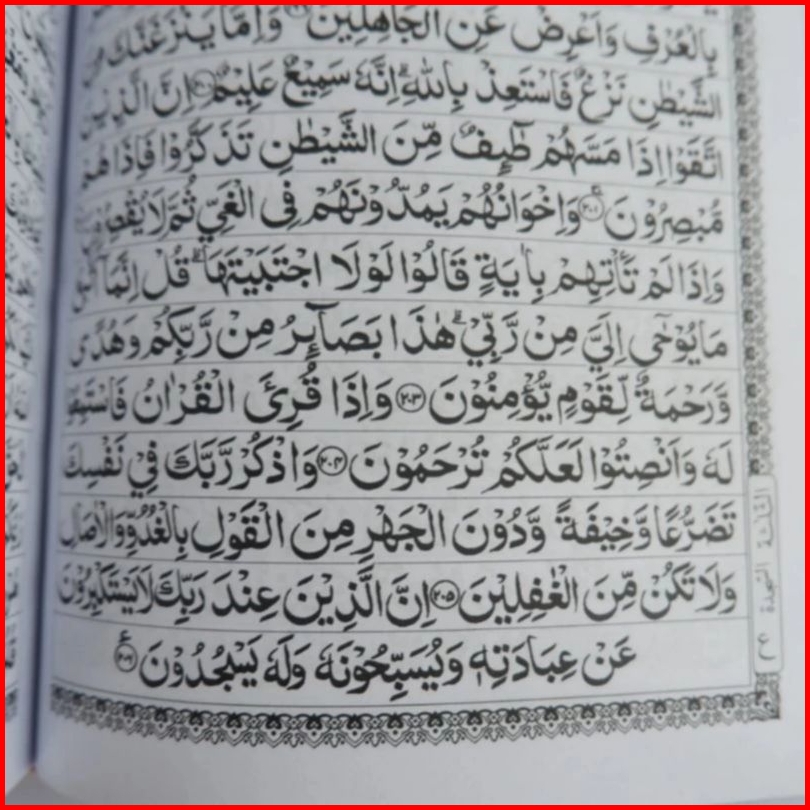 بِالْعُرْفِ وَاَعْرِضْ عَنِ الْجَاهِلِيْنَ ۱۹۹ وَاِمَّا يَنْزَغَنَّكَ مِنَ
الشَّيْطٰنِ نَزْغٌ فَاسْتَعِذْ بِاللّٰهِ ؕ اِنَّهٗ سَمِيْعٌ عَلِيْمٌ ۲۰۰ اِنَّ الَّذِيْنَ
اتَّقَوْا اِذَا مَسَّهُمْ طٰٓىِٕفٌ مِّنَ الشَّيْطٰنِ تَذَكَّرُوْا فَاِذَا هُمْ
مُّبْصِرُوْنَ ۲۰۱ وَاِخْوَانُهُمْ يَمُدُّوْنَهُمْ فِى الْغَيِّ ثُمَّ لَا يُقْصِرُوْنَ
وَاِذَا لَمْ تَاْتِهِمْ بِاٰيَةٍ قَالُوْا لَوْلَا اجْتَبَيْتَهَا ؕ قُلْ اِنَّمَاۤ اَتَّبِعُ
مَا يُوْحٰۤى اِلَيَّ مِنْ رَّبِّيْ ۚ هٰذَا بَصَآىِٕرُ مِنْ رَّبِّكُمْ وَهُدًى
وَّرَحْمَةٌ لِّقَوْمٍ يُّؤْمِنُوْنَ ۲۰۳ وَاِذَا قُرِئَ الْقُرْاٰنُ فَاسْتَمِعُوْا
لَهٗ وَاَنْصِتُوْا لَعَلَّكُمْ تُرْحَمُوْنَ ۲۰۴ وَاذْكُرْ رَّبَّكَ فِيْ نَفْسِكَ
تَضَرُّعًا وَّخِيْفَةً وَّدُوْنَ الْجَهْرِ مِنَ الْقَوْلِ بِالْغُدُوِّ وَالْاٰصَالِ
وَلَا تَكُنْ مِّنَ الْغٰفِلِيْنَ ۲۰۵ اِنَّ الَّذِيْنَ عِنْدَ رَبِّكَ لَا يَسْتَكْبِرُوْنَ
عَنْ عِبَادَتِهٖ وَيُسَبِّحُوْنَهٗ وَلَهٗ يَسْجُدُوْنَ ۲۰۶ ع
السجدة
ع